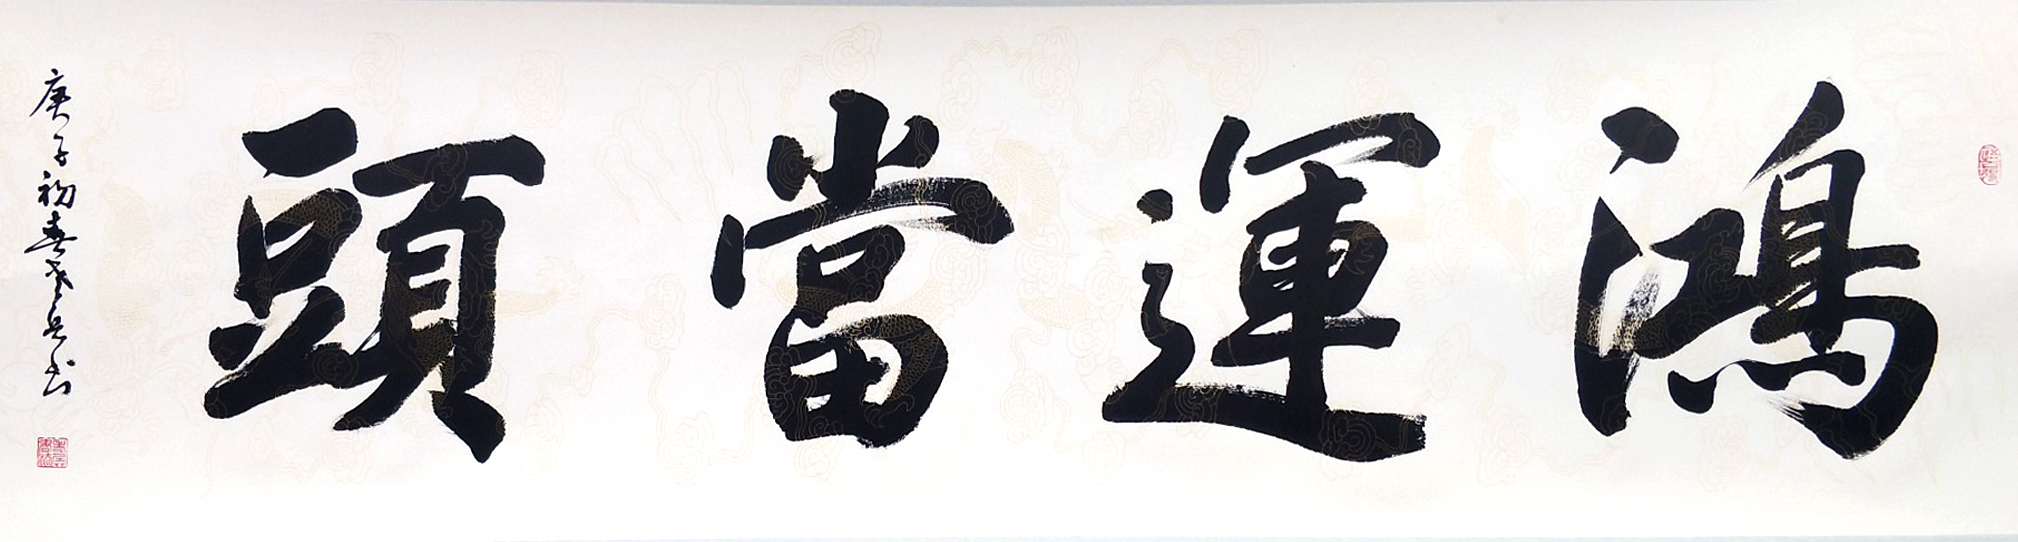 鴻運當頭
庚子初春
書